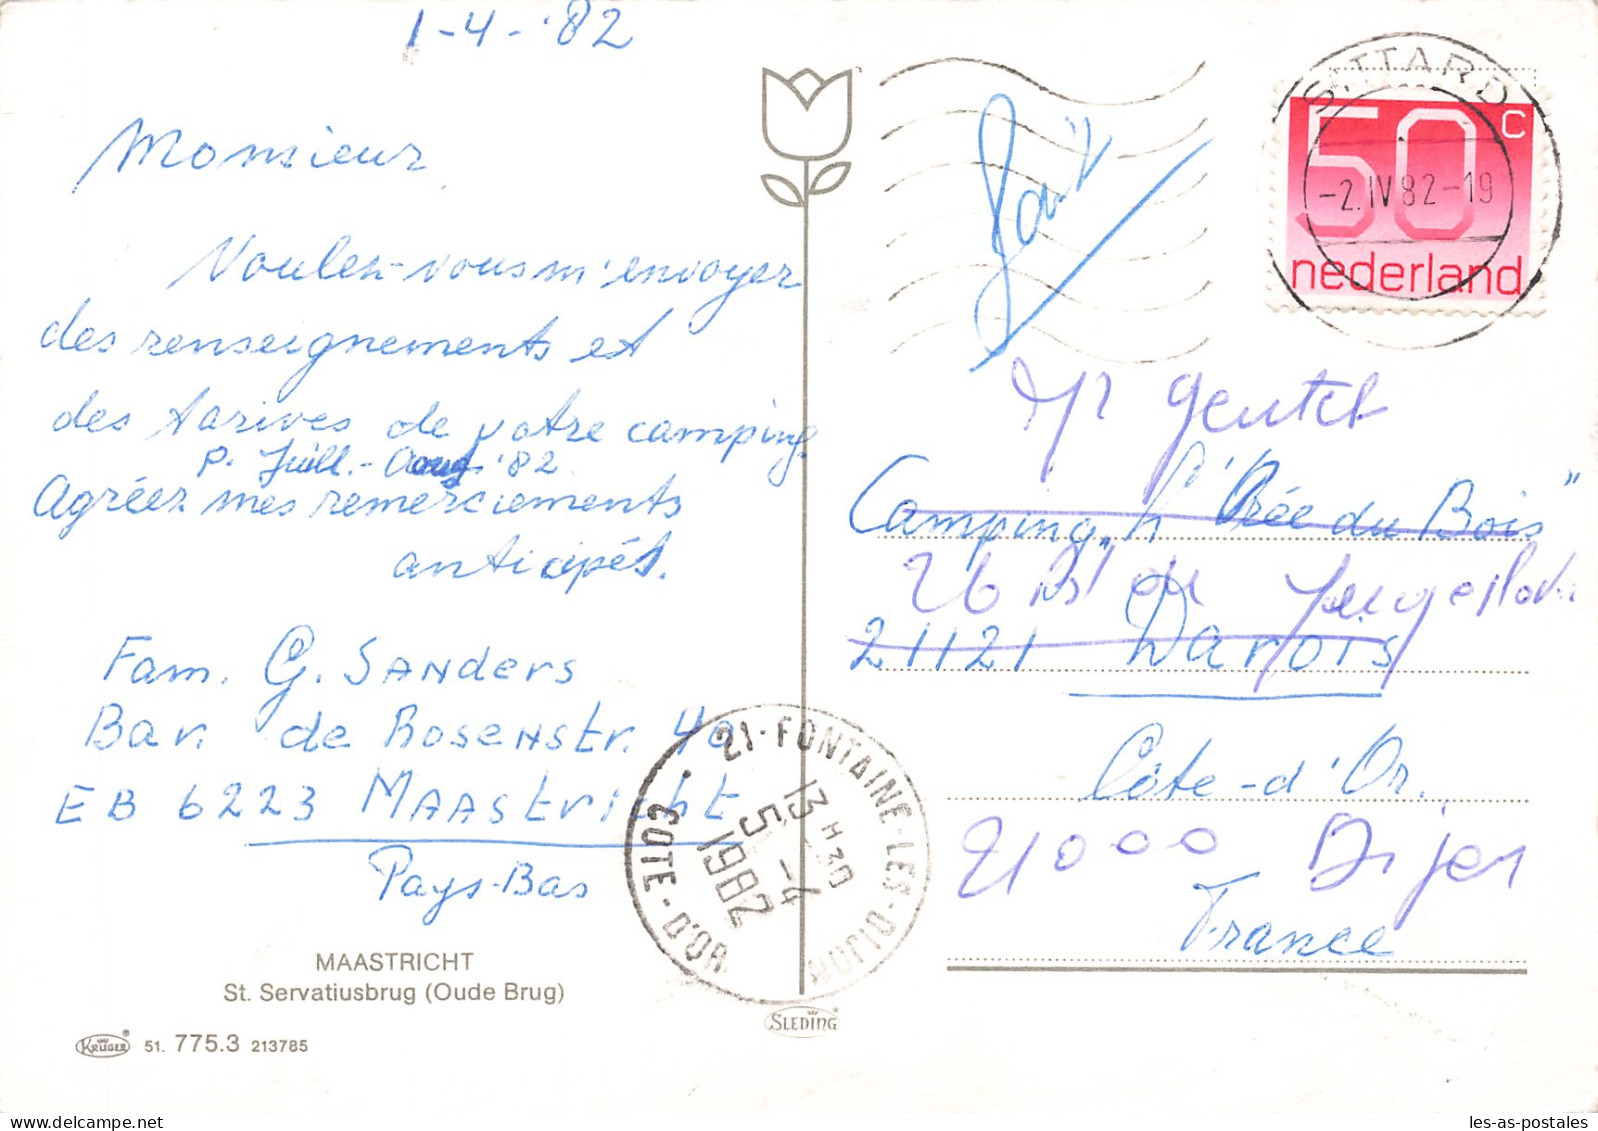 1-4-'82
Monsieur,
Voulez-vous m'envoyer
des renseignements et
des tarives de votre camping
p. Juill.-Aoug '82
Agréez mes remerciements
anticipés.
Fam. G. Sanders
Bar. de Rosenstr. 40
EB 6223 Maastricht
Pays-Bas
MAASTRICHT
St. Servatiusbrug (Oude Brug)
KRÜGER ® 51. 775.3 213785
21-FONTAINE-LES-DIJON
COTE-D'OR
13 H30
5 -4
1982
SLEDING ®
SITTARD
-2.IV 82-19
50 c
nederland
Mr Gentet
Camping „L'Orée du Bois"
26 Bd de
21121 Darois
Côte-d'Or.
21000 Dijon
France
les-as-postales